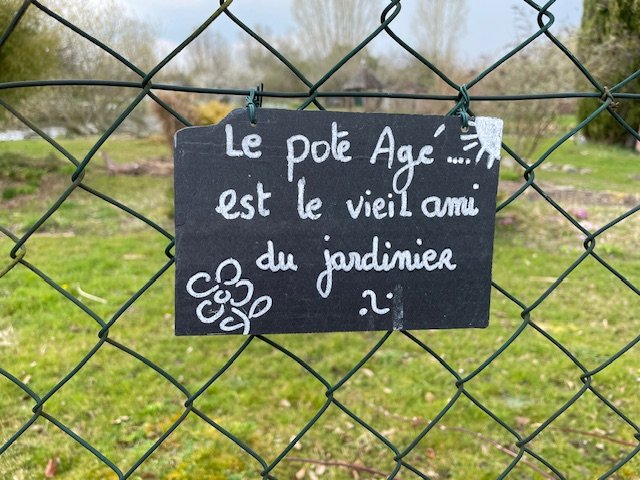 Le pote Agé....
est le vieil ami
du jardinier